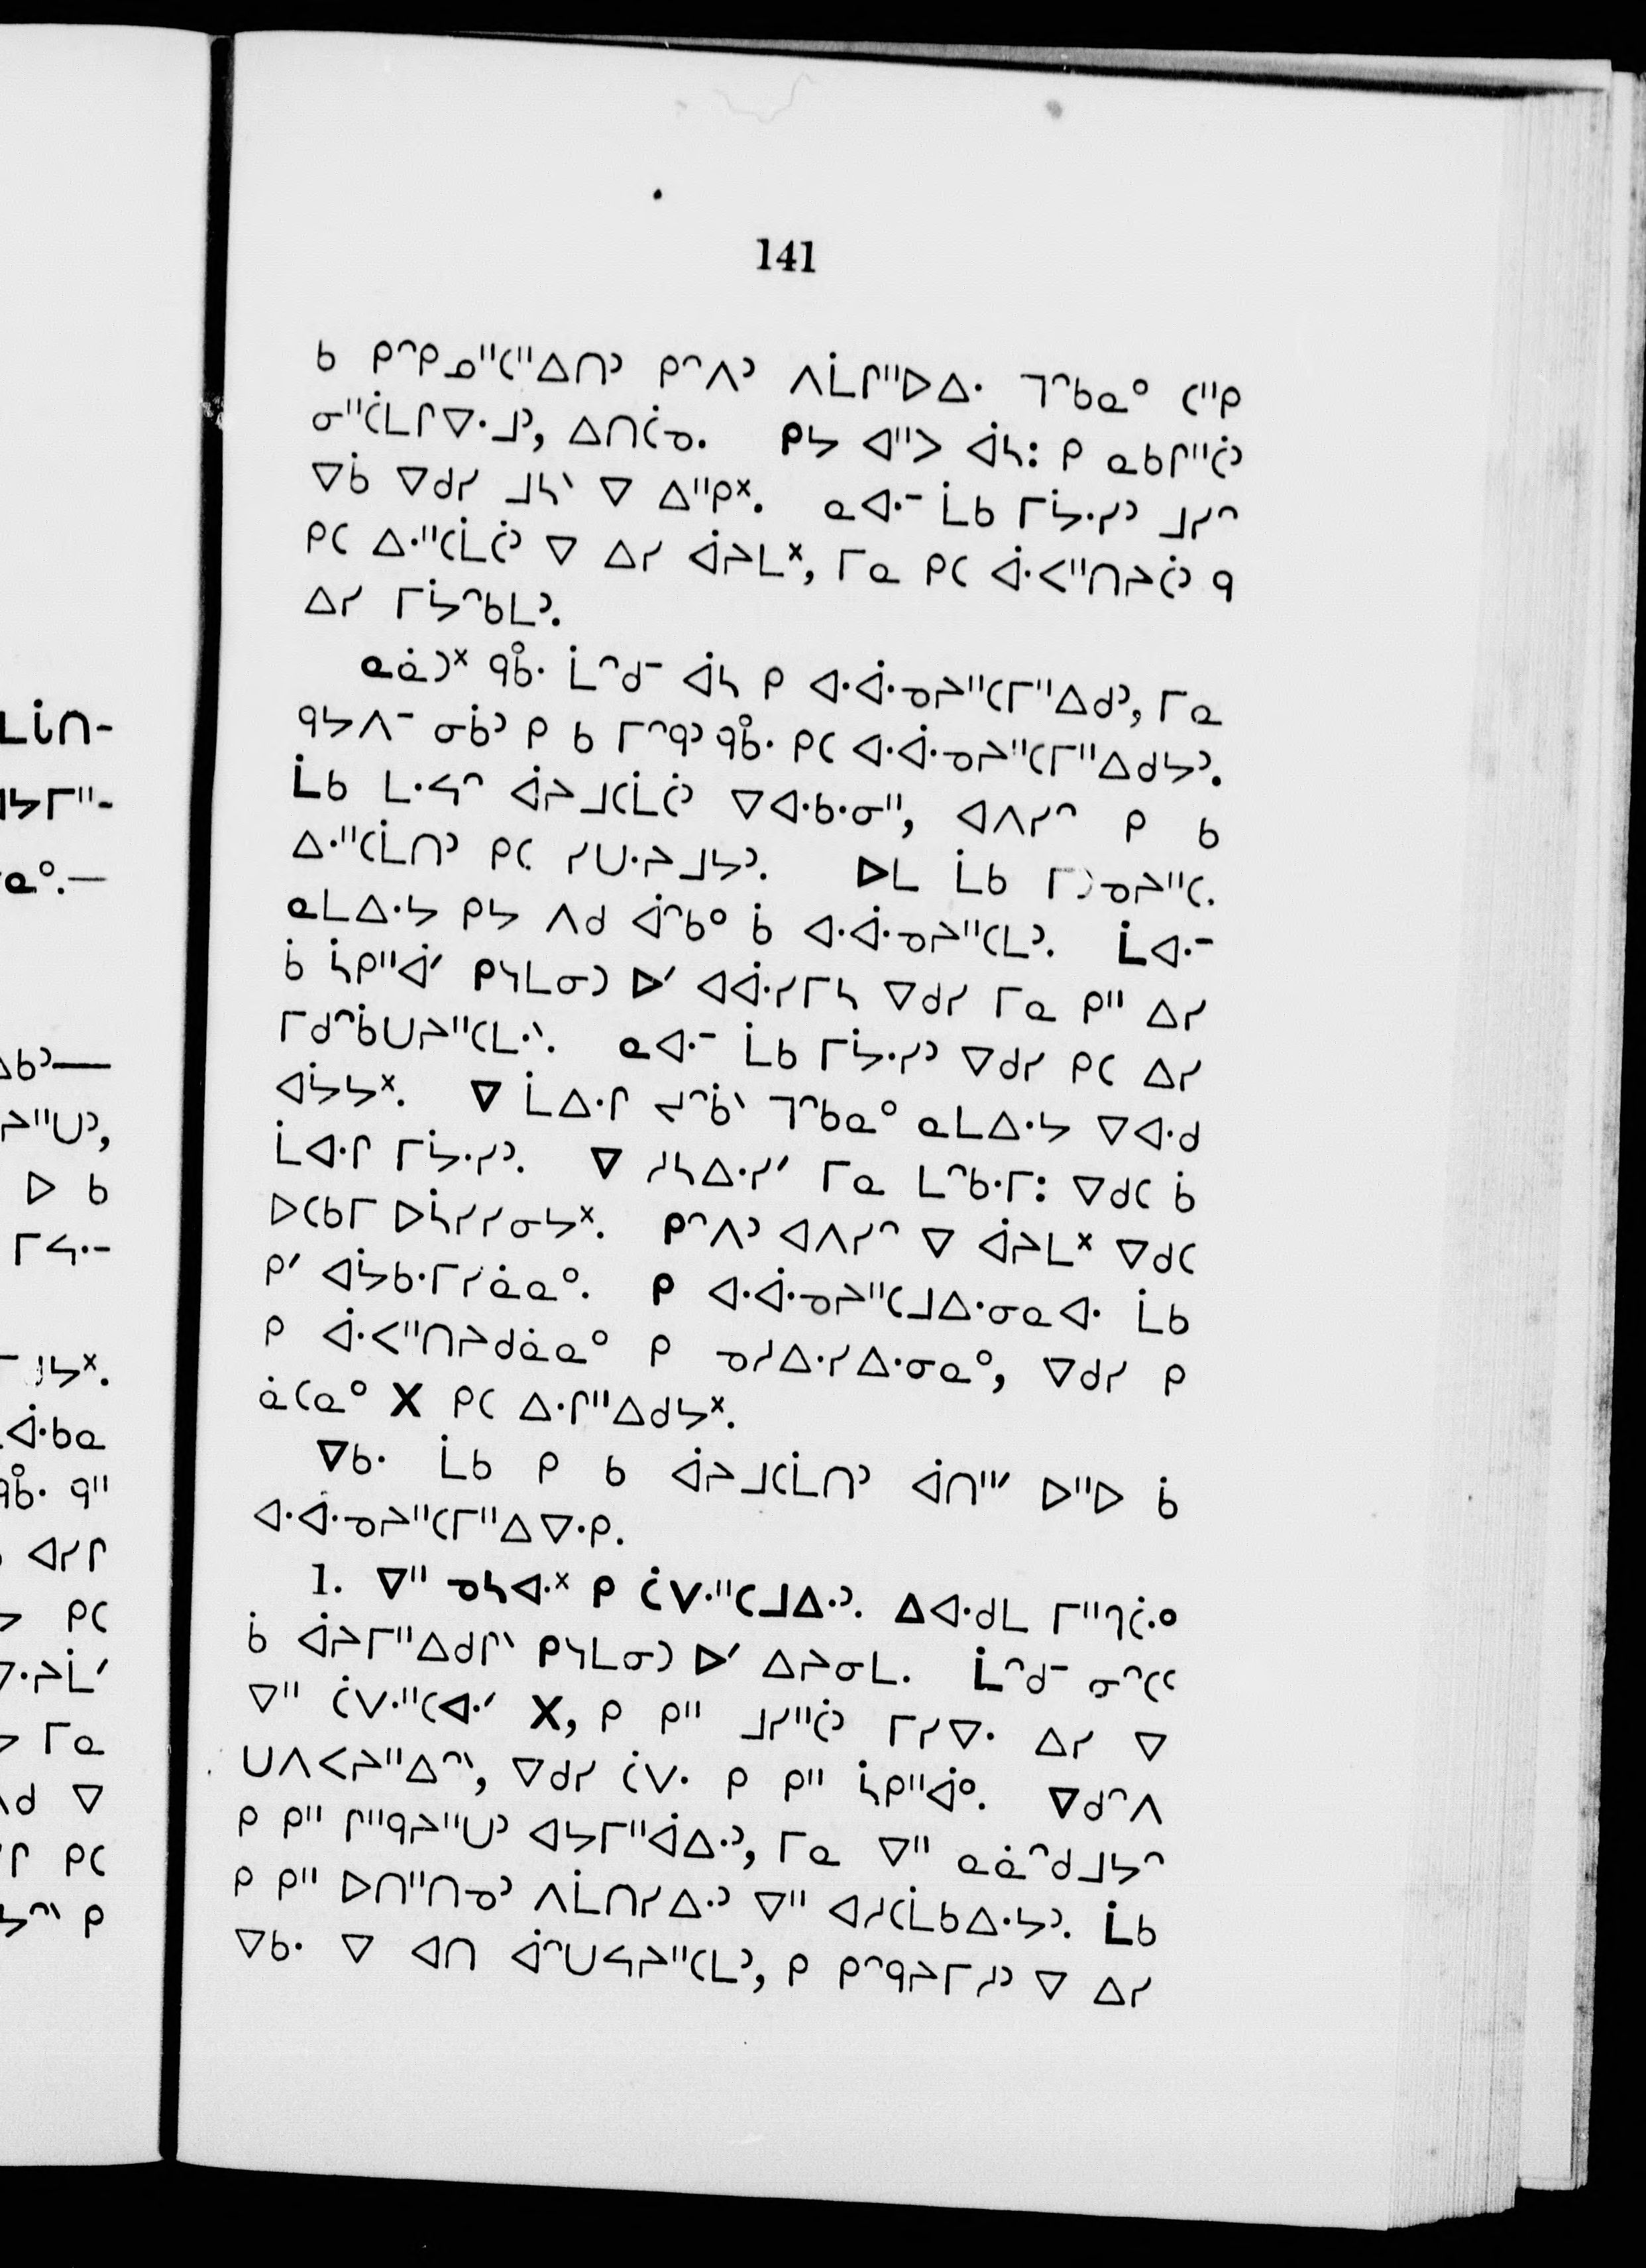 141
ᑲ ᑭᐢᑭᓄᐦᑕᐦᐃᑎᐣ ᑭᐢᐱᐣ ᐱᒫᒋᐦᐅᐃᐧ ᒣᐢᑲᓇᐤ ᑕᐦᑭ
ᓂᐦᑖᒪᒋᐁᐧᒧᐣ, ᐃᑎᑖᓀ. ᑭᔭ ᐊᐦᐳ ᐋᓴ: ᑭ ᓇᑲᒋᐦᑖᐣ
ᐁᑳ ᐁᑯᓯ ᒧᓴᐠ ᐁ ᐃᐦᑭᕽ. ᓇᐊᐧᐨ ᒫᑲ ᒥᔮᐧᓯᐣ ᒧᓯᐢ
ᑭᑕ ᐃᐧᐦᑕᒫᑖᐣ ᐁ ᐃᓯ ᐋᔨᒪᕽ, ᒥᓇ ᑭᑕ ᐋᐧᐸᐦᑎᔨᑖᐣ ᑫ
ᐃᓯ ᒥᔮᐢᑲᒪᐣ.
ᓇᓈᑐᕽ ᑫᑳᐧᐤ ᒫᐢᑯᐨ ᐋᓴ ᑭ ᐊᐧᐋᐧᓀᔨᐦᑕᒥᐦᐃᑯᐣ, ᒥᓇ
ᑫᔭᐱᐨ ᓂᑳᐣ ᑭ ᑲ ᒥᐢᑫᐣ ᑫᑳᐧᐤ ᑭᑕ ᐊᐧᐋᐧᓀᔨᐦᑕᒥᐦᐃᑯᔭᐣ.
ᒫᑲ ᒪᐧᔦᐢ ᐋᔨᒧᑕᒫᑖᐣ ᐁᐊᐧᑲᐧᓂᐦ, ᐊᐱᓯᐢ ᑭ ᑲ
ᐃᐧᐦᑕᒫᑎᐣ ᑭᑕ ᓯᑌᐧᔨᒧᔭᐣ. ᐅᒪ ᒫᑲ ᒥᑐᓀᔨᐦᑕ.
ᓇᒪᐃᐧᔭ ᑭᔭ ᐱᑯ ᐋᐢᑲᐤ ᑳ ᐊᐧᐋᐧᓀᔨᐦᑕᒪᐣ. ᒫᐊᐧᐨ
ᑳ ᓵᑭᐦᐋᐟ ᑭᓭᒪᓂᑐ ᐅᐟ ᐊᐋᐧᓯᒥᓴ ᐁᑯᓯ ᒥᓇ ᑭᐦ ᐃᓯ
ᒥᑯᐢᑳᑌᔨᐦᑕᒪᐧᐠ. ᓇᐊᐧᐨ ᒫᑲ ᒥᔮᐧᓯᐣ ᐁᑯᓯ ᑭᑕ ᐃᓯ
ᐊᔮᔭᕽ. ᐁ ᒫᐃᐧᒋ ᔪᐢᑳᐠ ᒣᐢᑲᓇᐤ ᓇᒪᐃᐧᔭ ᐁᐊᐧᑯ
ᒫᐊᐧᒋ ᒥᔮᐧᓯᐣ. ᐁ ᓱᓴᐃᐧᓯᐟ ᒥᓇ ᒪᐢᑲᐧᒥ: ᐁᑯᑕ ᑳ
ᐅᑕᑲᒥ ᐅᓵᓯᓯᓂᔭᕽ. ᑭᐢᐱᐣ ᐊᐱᓯᐢ ᐁ ᐋᔨᒪᕽ ᐁᑯᑕ
ᑭᐟ ᐊᔮᑲᐧᒥᓯᓈᓇᐤ. ᑭ ᐊᐧᐋᐧᓀᔨᐦᑕᒧᐃᐧᓂᓇᐊᐧ ᒫᑲ
ᑭ ᐋᐧᐸᐦᑎᔨᑯᓈᓇᐤ ᑭ ᓀᓱᐃᐧᓯᐃᐧᓂᓇᐤ, ᐁᑯᓯ ᑭ
ᓈᑕᓇᐤ X ᑭᑕ ᐃᐧᒋᐦᐃᑯᔭᕽ.
ᐁᑲᐧ ᒫᑲ ᑭ ᑲ ᐋᔨᒧᑕᒫᑎᐣ ᐋᑎᐦᐟ ᐅᐦᐅ ᑳ
ᐊᐧᐋᐧᓀᔨᐦᑕᒥᐦᐃᐁᐧᑭ.
1. ᐁᐦ ᓀᓴᐊᐧᕽ ᑭ ᑖᐯᐧᐦᑕᒧᐃᐧᐣ. ᐃᐊᐧᑯᒪ ᒥᐦᒉᑖᐧᐤ
ᑳ ᐋᔨᒥᐦᐃᑯᒋᐠ ᑭᓭᒪᓂᑐ ᐅᐟ ᐃᔨᓂᒪ. ᒫᐢᑯᐨ ᓂᐢᑕᑦ
ᐁᐦ ᑖᐯᐧᐦᑕᐊᐧᐟ X, ᑭ ᑭᐦ ᒧᓯᐦᑖᐣ ᒥᓯᐁᐧ ᐃᓯ ᐁ
ᑌᐱᐸᔨᐦᐃᐢᐠ, ᐁᑯᓯ ᑖᐯᐧ ᑭ ᑭᐦ ᓵᑭᐦᐋᐤ. ᐁᑯᐢᐱ
ᑭ ᑭᐦ ᒋᐦᑫᔨᐦᑌᐣ ᐊᔭᒥᐦᐋᐃᐧᐣ, ᒥᓇ ᐁᐦ ᓇᓈᐢᑯᒧᔭᐢ
ᑭ ᑭᐦ ᐅᑎᐦᑎᓀᐣ ᐱᒫᑎᓯᐃᐧᐣ ᐁᐦ ᐊᓱᑕᒫᑲᐃᐧᔭᐣ. ᒫᑲ
ᐁᑲᐧ ᐁ ᐊᑎ ᐋᐢᑌᔦᔨᐦᑕᒪᐣ, ᑭ ᑭᐢᑫᔨᒥᓱᐣ ᐁ ᐃᓯ